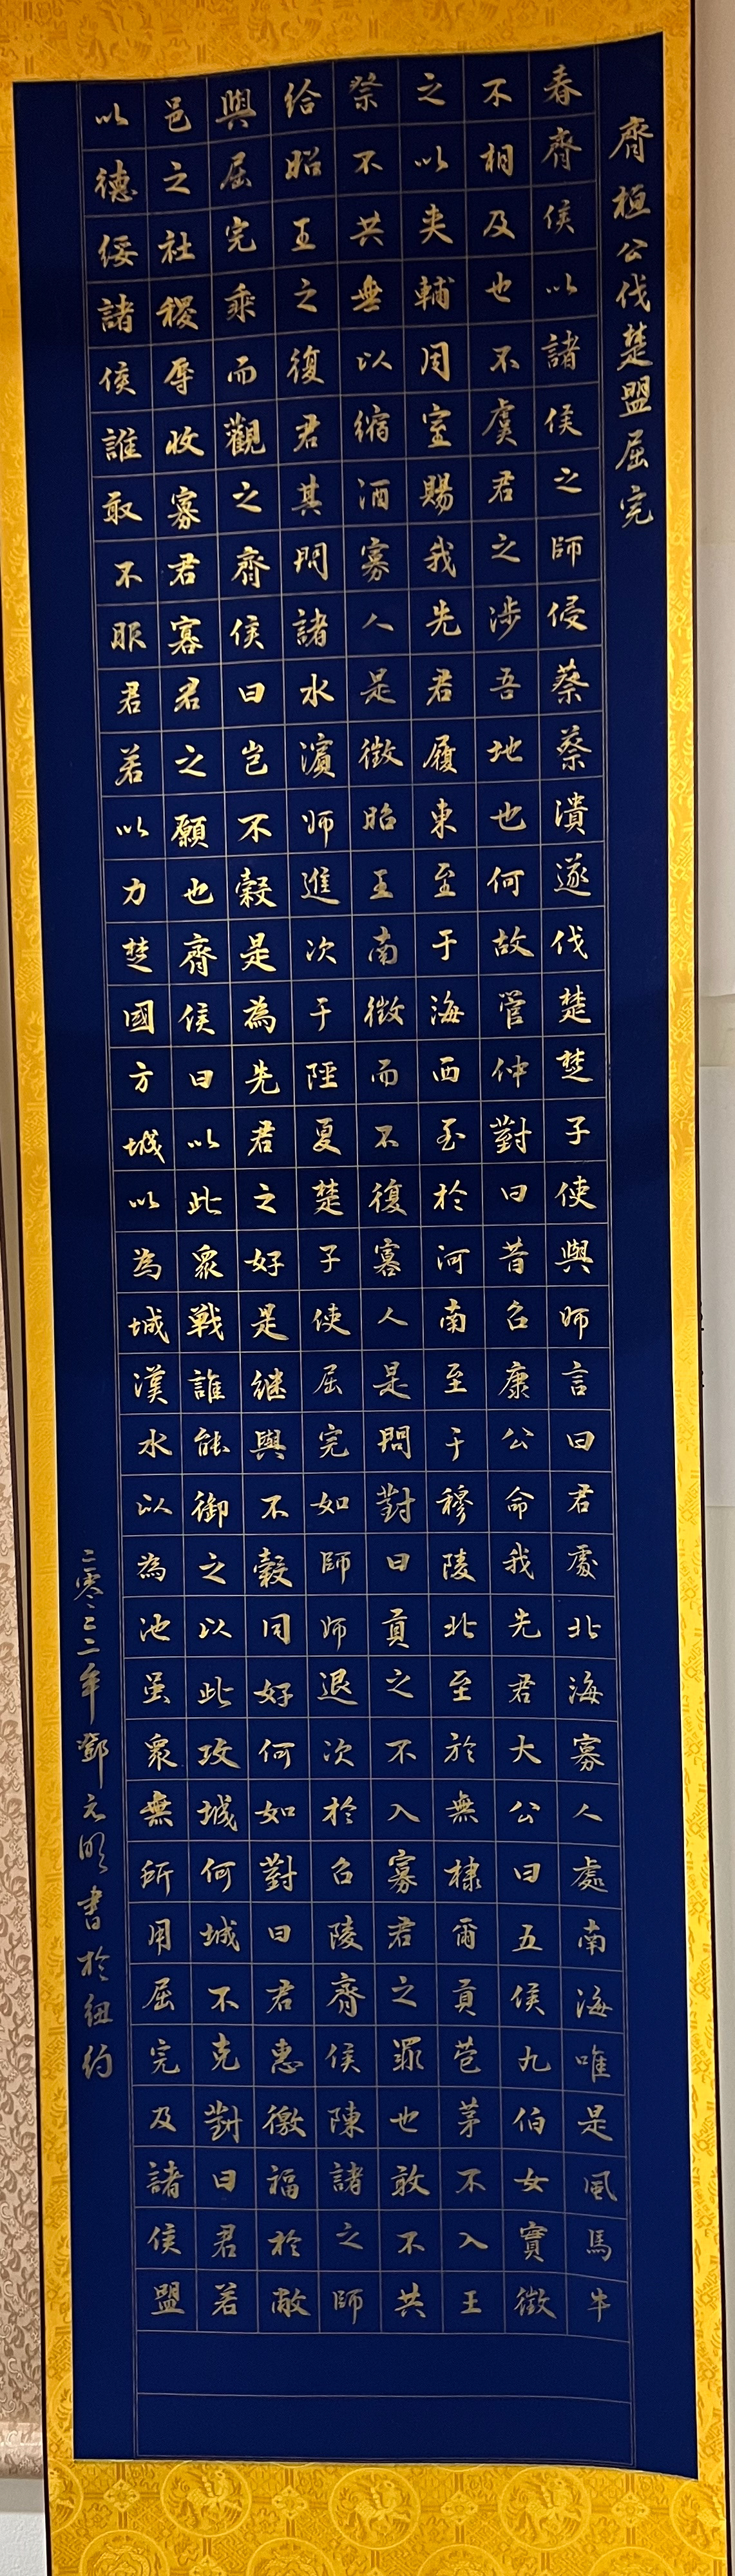 齊桓公伐楚盟屈完
春齊侯以諸侯之師侵蔡蔡潰遂伐楚楚子使與师言曰君處北海寡人處南海唯是風馬牛
不相及也不虞君之涉吾地也何故管仲對曰昔召康公命我先君大公曰五侯九伯女實徵
之以夾輔周室賜我先君履東至于海西至於河南至于穆陵北至於無棣爾貢苞茅不入王
祭不共無以縮酒寡人是徵昭王南徵而不復寡人是問對曰貢之不入寡君之罪也敢不共
給昭王之復君其問諸水濱师進次于陘夏楚子使屈完如師师退次於召陵齊侯陳諸之師
與屈完乘而觀之齊侯曰豈不穀是為先君之好是継與不穀同好何如對曰君惠徼福於敝
邑之社稷辱收寡君寡君之願也齊侯曰以此眾戦誰能御之以此攻城何城不克對曰君若
以德綏諸侯誰敢不服君若以力楚國方城以為城漢水以為池虽眾無所用屈完及諸侯盟
二零二二年鄧元明書於紐約